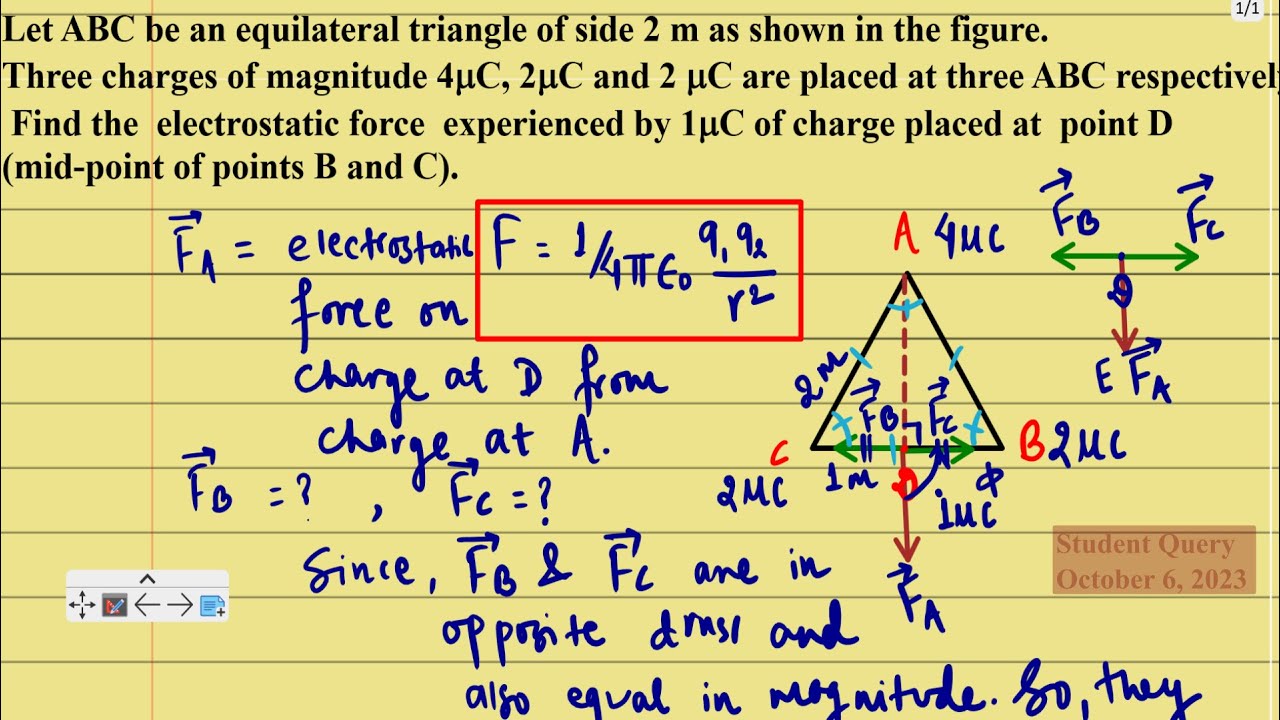 1/1
Let ABC be an equilateral triangle of side 2 m as shown in the figure.
Three charges of magnitude 4μC, 2μC and 2 μC are placed at three ABC respectively
Find the electrostatic force experienced by 1μC of charge placed at point D
(mid-point of points B and C).
F⃗_A = electrostatic
force on
charge at D from
charge at A.
F = 1/4πϵ₀ q₁q₂/r²
F⃗_B = ? , F⃗_C = ?
Since, F⃗_B & F⃗_C are in
opposite and
also equal in magnitude. So, they
A 4μC
2m
F⃗_B F⃗_C
C
B 2μC
2μC
1m
D
1μC
F⃗_A
F⃗_B F⃗_C
D
E F⃗_A
Student Query
October 6, 2023